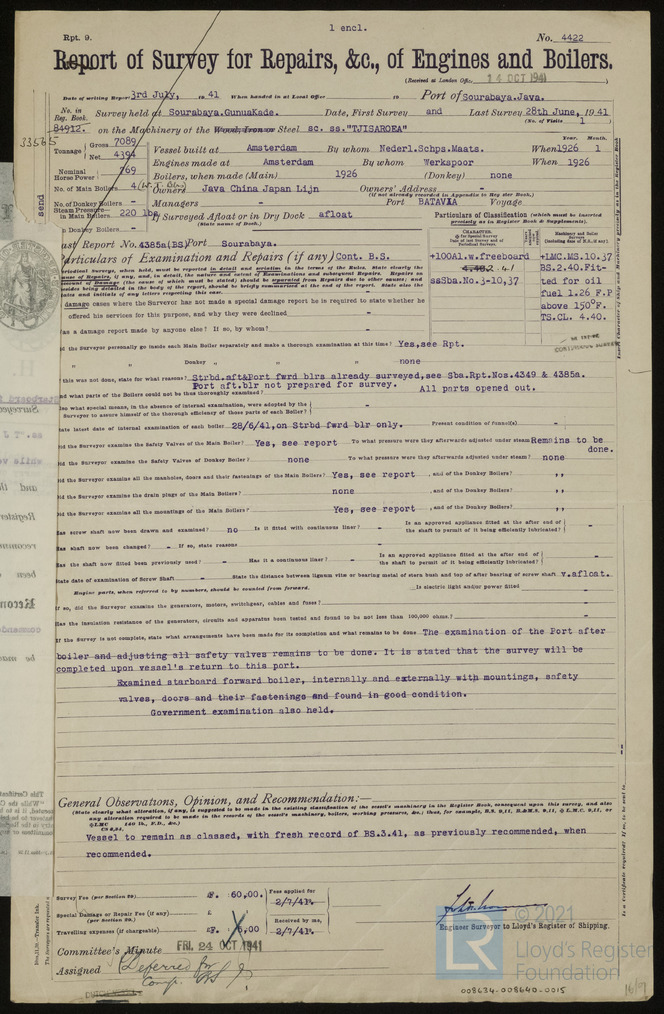 1 encl.
Rpt. 9. No. 4422
Report of Survey for Repairs, &c., of Engines and Boilers.
(Received at London Office 14 OCT 1941)
Date of writing Report 3rd July, 19 41 When handed in at Local Office 19 Port of Sourabaya.Java.
No. in Reg. Book. Survey held at Sourabaya.GunuaKade. Date, First Survey and Last Survey 28th June, 1941
(No. of Visits 1)
33565 84912. on the Machinery of the Wood, Iron or Steel sc. ss."TJISAROEA"
Tonnage Gross 7089 Net 4394 Vessel built at Amsterdam By whom Nederl.Schps.Maats. When 1926 Year. Month. 1
Engines made at Amsterdam By whom Werkspoor When 1926
Nominal Horse Power 769 Boilers, when made (Main) 1926 (Donkey) none
No. of Main Boilers 4 Owners Java China Japan Lijn Owners' Address -
(if not already recorded in Appendix to Register Book.)
No. of Donkey Boilers - Managers - Port BATAVIA Voyage
Steam Pressure in Main Boilers 220 lbs If Surveyed Afloat or in Dry Dock afloat
(State name of Dock.)
in Donkey Boilers -
Particulars of Classification (which must be inserted precisely as in Register Book & Supplements).
Last Report No. 4385a(BS) Port Sourabaya.
Particulars of Examination and Repairs (if any) Cont. B.S.
+100A1.w.freeboard
4.40,2 4.41
ssSba.No.3-10,37
+LMC.MS.10.37
BS.2.40.Fit-
ted for oil
fuel 1.26.F.P
above 150°F.
TS.CL. 4.40.
damage cases where the Surveyor has not made a special damage report he is required to state whether he
offered his services for this purpose, and why they were declined -
as a damage report made by anyone else? If so, by whom? -
id the Surveyor personally go inside each Main Boiler separately and make a thorough examination at this time? Yes,see Rpt.
" " Donkey " " " none
If this was not done, state for what reasons? Strbd.aft&Port fwrd blrs already surveyed,see Sba.Rpt.Nos.4349 & 4385a.
Port aft.blr not prepared for survey.
And what parts of the Boilers could not be thus thoroughly examined? All parts opened out.
Also what special means, in the absence of internal examination, were adopted by the
Surveyor to assure himself of the thorough efficiency of those parts of each Boiler? -
State latest date of internal examination of each boiler 28/6/41,on Strbd fwrd blr only. Present condition of funnel(s) -
Did the Surveyor examine the Safety Valves of the Main Boiler? Yes, see report To what pressure were they afterwards adjusted under steam Remains to be done.
Did the Surveyor examine the Safety Valves of Donkey Boiler? none To what pressure were they afterwards adjusted under steam? none
Did the Surveyor examine all the manholes, doors and their fastenings of the Main Boilers? Yes, see report, and of the Donkey Boilers? ,,
Did the Surveyor examine the drain plugs of the Main Boilers? none, and of the Donkey Boilers? ,,
Did the Surveyor examine all the mountings of the Main Boilers? Yes, see report, and of the Donkey Boilers? ,,
Has screw shaft now been drawn and examined? no Is it fitted with continuous liner? - Is an approved appliance fitted at the after end of the shaft to permit of it being efficiently lubricated? -
Has shaft now been changed? - If so, state reasons -
Has the shaft now fitted been previously used? - Has it a continuous liner? - Is an approved appliance fitted at the after end of the shaft to permit of it being efficiently lubricated? -
State date of examination of Screw Shaft - State the distance between lignum vitæ or bearing metal of stern bush and top of after bearing of screw shaft v.afloat.
Engine parts, when referred to by numbers, should be counted from forward. Is electric light and/or power fitted -
If so, did the Surveyor examine the generators, motors, switchgear, cables and fuses? -
Has the insulation resistance of the generators, circuits and apparatus been tested and found to be not less than 100,000 ohms.? -
If the Survey is not complete, state what arrangements have been made for its completion and what remains to be done The examination of the Port after
boiler and adjusting all safety valves remains to be done. It is stated that the survey will be
completed upon vessel's return to this port.
Examined starboard forward boiler, internally and externally with mountings, safety
valves, doors and their fastenings and found in good condition.
Government examination also held.
General Observations, Opinion, and Recommendation:—
(State clearly what alteration, if any, is suggested to be made in the existing classification of the vessel's machinery in the Register Book, consequent upon this survey, and also
any alteration required to be made in the records of the vessel's machinery, boilers, working pressures, &c.; thus, for example, B.S. 9,11, B&M.S. 9,11, LMC 9,11, or
Vessel to remain as classed, with fresh record of BS.3.41, as previously recommended, when
recommended.
Survey Fee (per Section 29) £F. 60,00. Fees applied for 2/7/41P.
Special Damage or Repair Fee (if any) (per Section 29.) £
Received by me, 2/7/41P.
Travelling expenses (if chargeable) £F. 5,00
Engineer Surveyor to Lloyd's Register of Shipping.
Committee's Minute FRI. 24 OCT 1941
Assigned Deferred for
Comp. BS
© 2021
LR
Lloyd's Register
Foundation
008634-008640-0015